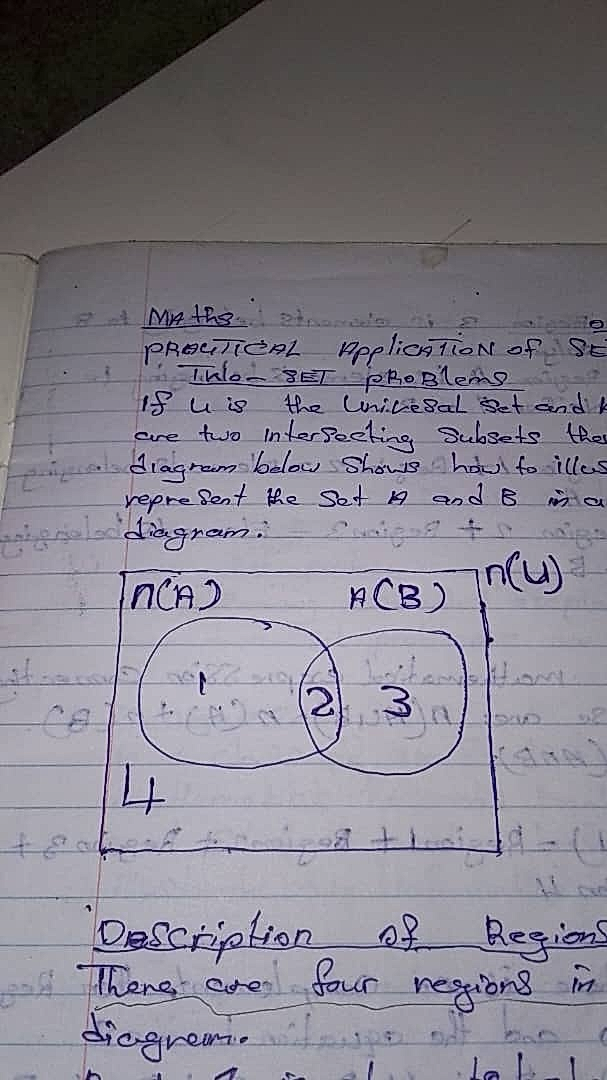 Maths
PRACTICAL Application of SE
Into SET PROBlems
If u is the Univesal Set and
are two intersecting Subsets the
diagram below Shows how to illus
represent the Set A and B in a
diagram.
n(A) A(B) n(U)
1 2 3
4
Description of Regions
There are four regions in
diagram.